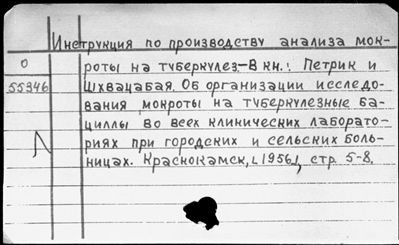 Инструкция по производству анализа мок-
О
роты на туберкулез.-В кн.: Петрик и
55346
Шхвацабая. Об организации исследо-
вания мокроты на туберкулезные ба-
циллы во всех клинических лаборато-
риях при городских и сельских боль-
ницах. Краснокамск, [1956], стр. 5-8.